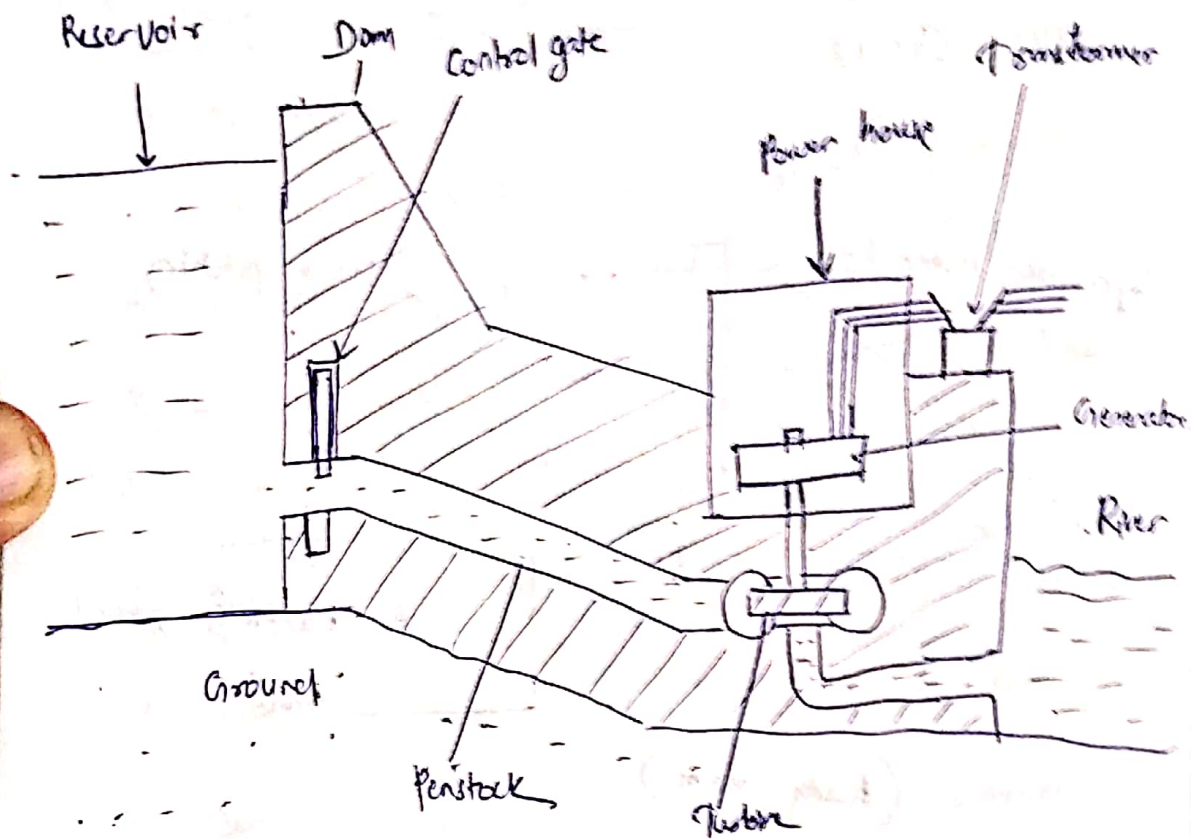 Reservoir
Dam
Control gate
Transformer
Power house
Generator
River
Ground
Penstock
Turbine